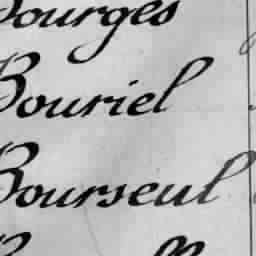 Bourges
Bouriel
Bourseul